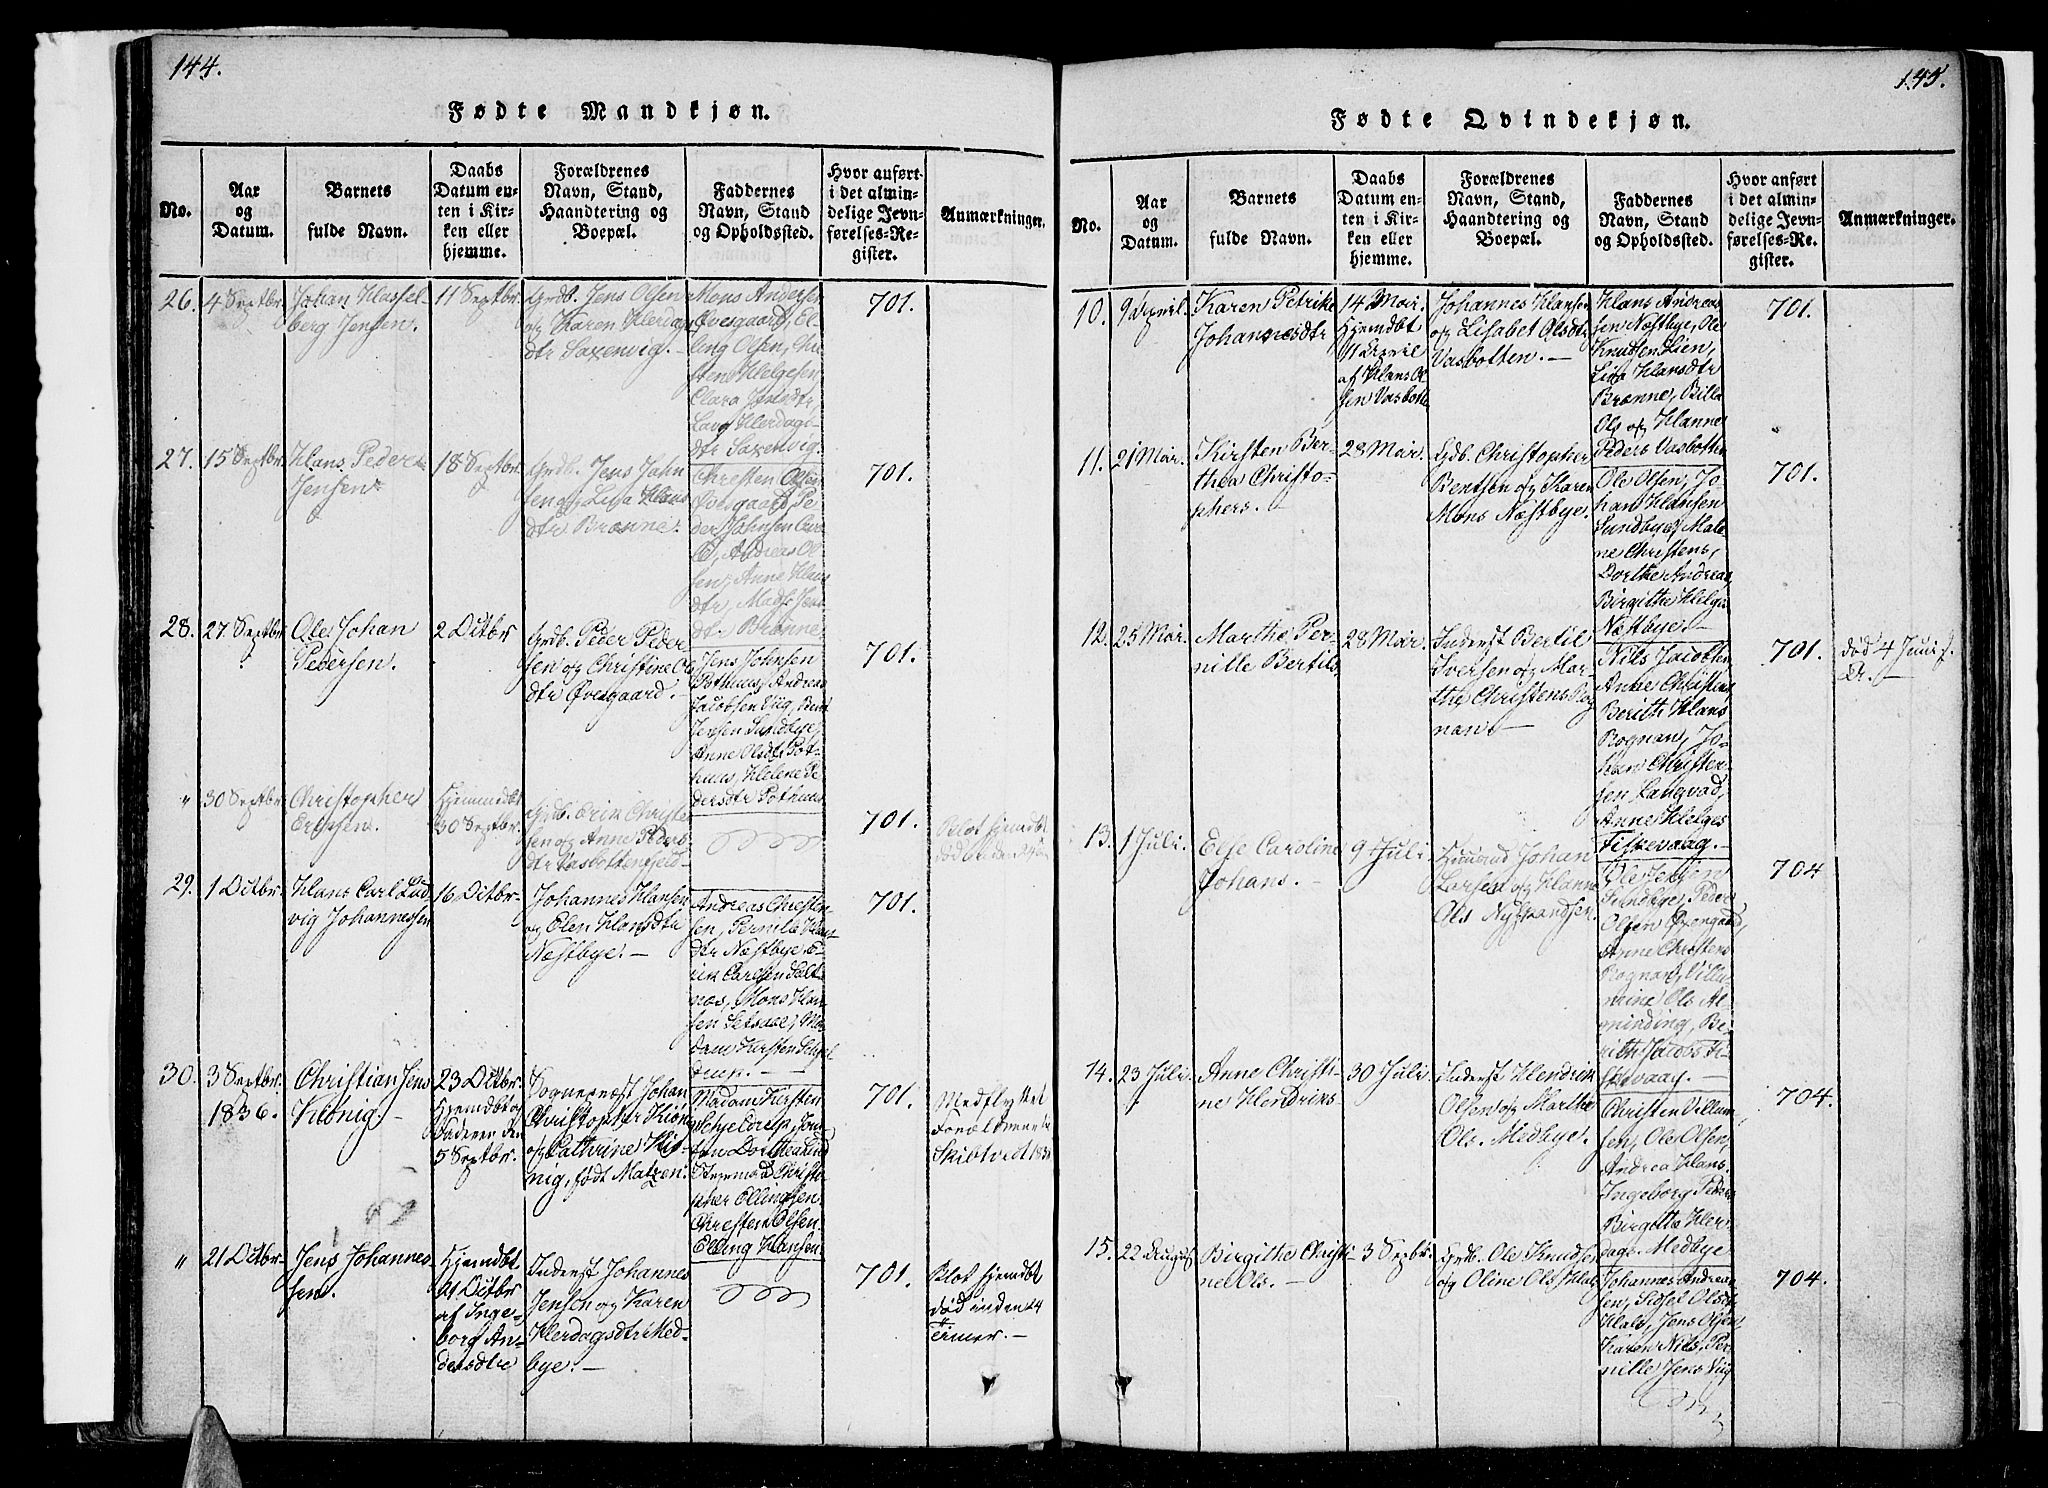 144.
Fødte Mandkjøn.
No.
Aar
og
Datum.
Barnets
fulde Navn.
Daabs
Datum en-
ten i Kir-
ken eller
hjemme.
Forældrenes
Navn, Stand,
Haandtering og
Boepæl.
Faddernes
Navn, Stand
og Opholdssted.
Hvor anført
i det almin-
delige Jevn-
førelses-Re-
gister.
Anmærkninger.
26.
4 Septbr.
Johan Hassel-
berg Jensen.
11 Septbr.
Grdb. Jens Olsen
og Karen Herdags
dtr Saxenvig.
Mons Andersen
Øvesgaard, El-
ling Olsen, Chri
sten Helgesen,
Clara
Herdags-
dtr Saxenvig.
701.
27.
15 Septbr.
Hans Peder
Jensen
18 Septbr.
Grdb. Jens John
sen og Lisa Hans
dtr Brænne.
Chresten Olsen
Øvesgaard, Pe
der Johnsen
Andreas Ol
sen, Anne Hans
dtr, Jens
dt. Brænne
701.
28.
27 Septbr
Ole Johan
Pedersen.
2 Octbr
Grdb. Peder Peder
sen og Christine Ols
dtr Øvesgaard.
Jens Johnsen
Pothuus, Andreas
Jacobsen Viig,
Jensen Sundbye,
Anne Olsdt. Pot-
huus, Helene Pe
dersdtr Pothuus
701.
"
30 Septbr
Christopher
Ericsen.
Hjemmedbt
30 Septbr.
Grdb. Erik Christe
sen og Anne Peders
dtr Vasbottenfjeld
701.
Blot hjemdbt
død
29.
1 Octbr.
Hans Carl Lud
vig Johannessen
16 Octbr.
Johannes Hansen
og Elen Hansdtr
Næstbye.
Andreas Chresten-
sen, Pernille Hans
dtr Næstbye, E-
rik Carlsen Salt-
næs, Mons Han-
sen Setsaae, Ma-
dam Kirsten Schjel
drup.
701.
30.
3 Septbr.
1836.
Christian Jens
König.
23 Octbr.
Hjemdbt af
Faderen den
5 Septbr.
Sognepræst Johan
Christopher König
og Cathrine Kö-
nig, født Matzen.
Madam Kirsten
Schjeldrup, Jom
fru Dorthea Lind
Christo-
pher Ellingsen
Chresten Olsen
Elling Hansen
701.
Medflyttet
Forældrene til
Skibtvedt
"
21 Octbr.
Jens Johannes
sen.
Hjemdbt
21 Octbr
af Inge-
borg An-
dersdtr
Inderst Johannes
Jensen og Karen
Herdagsdtr Med-
bye.
701.
Blot hjemdbt
død inden 24
Timer.
145.
Fødte Qvindekjøn.
No.
Aar
og
Datum.
Barnets
fulde Navn.
Daabs
Datum en-
ten i Kir-
ken eller
hjemme.
Forældrenes
Navn, Stand,
Haandtering og
Boepæl.
Faddernes
Navn, Stand
og Opholdssted.
Hvor anført
i det almin-
delige Jevn-
førelses-Re-
gister.
Anmærkninger.
10.
9 April.
Karen Petrike
Johannesdtr
14 Mai.
Hjemdbt
11 April
af Hans Ol
sen Vasbotn
Johannes Hansen
og Lisabet Olsdtr
Vasbotten.
Hans Andreas
sen Næstbye, Ole
Knutsen Lien,
Lisa Hansdtr
Brænne, Bille
Ols og Hanne
Peders Vasbotten
701.
11.
21 Mai.
Kirsten Ber-
thea Christo-
phers.
28 Mai.
Grdb. Christopher
Bentsen og Karen
Mons Næstbye.
Ole Olsen, Jo-
han Hansen
Sundbye, Male-
ne Christens,
Dorthe Andreas,
Birgitte Helge
Næstbye.
701.
12.
25 Mai.
Marthe Per-
nille Bertils,
28 Mai.
Inderst Bertil
Iversen og Mar-
the Christens Rog
nan.
Nils Jacobsen
Anne Christens,
Berith Hans
Rognan, Jo-
han Christen-
sen Langvad,
Anne Helges
Fiskevaag.
701.
død 4 Juni s.
Ar.
13.
1 Juli.
Else Caroline
Johans.
9 Juli
Huusmd Johan
Larsen og Hanne
Ols Nystrandsen.
Ole Jensen
Sundbye, Peder
Olsen Øvergaard,
Anne Christens
Rognan, Villu-
mine Ols Al
minding, Be-
rith Jacobs Fi-
skevaag.
704
14.
23 Juli
Anne Christi-
ne Hendriks
30 Juli
Inderst Hendrik
Olsen og Marthe
Ols. Medbye.
Christen Villum-
sen, Ole Olsen,
Andrea Hans.
Ingeborg Peders
Birgitte Her-
dags. Medbye
704.
15.
22 August
Birgithe Christi-
ne Ols.
3 Septbr.
Grdb. Ole Knudsen
og Oline Ols Hals
Johannes Andrea
sen, Sidsel Olsdtr
Hals, Jens Olsen
Karen Nils, Per
nille Jens Viig
704.